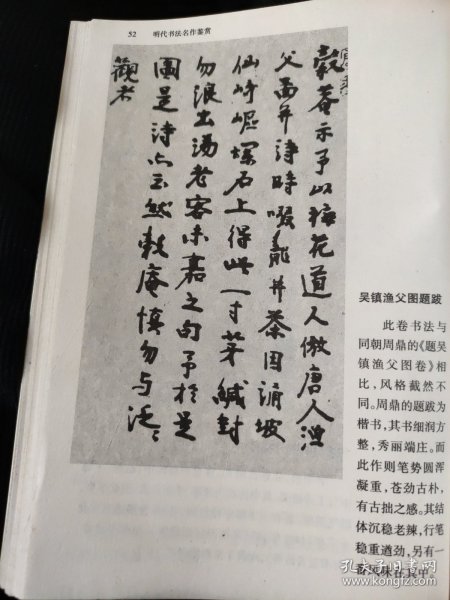 52 明代书法名作鉴赏
穀菴示予以梅花道人倣唐人漁
父并詩時啜龍井茶因誦坡
仙崎嶇爛石上得此一寸芽緘封
勿浪出湯老客未嘉之句予於是
圖是詩亦云然穀庵慎勿与泛〻
觀者
吴镇渔父图题跋
此卷书法与
同朝周鼎的《题吴
镇渔父图卷》相
比，风格截然不
同。周鼎的题跋为
楷书，其书细润方
整，秀丽端庄。而
此作则笔势圆浑
凝重，苍劲古朴，
有古拙之感。其结
体沉稳老辣，行笔
稳重遒劲，另有一
番风味在其中。
孔夫子旧书网
kongfz.com